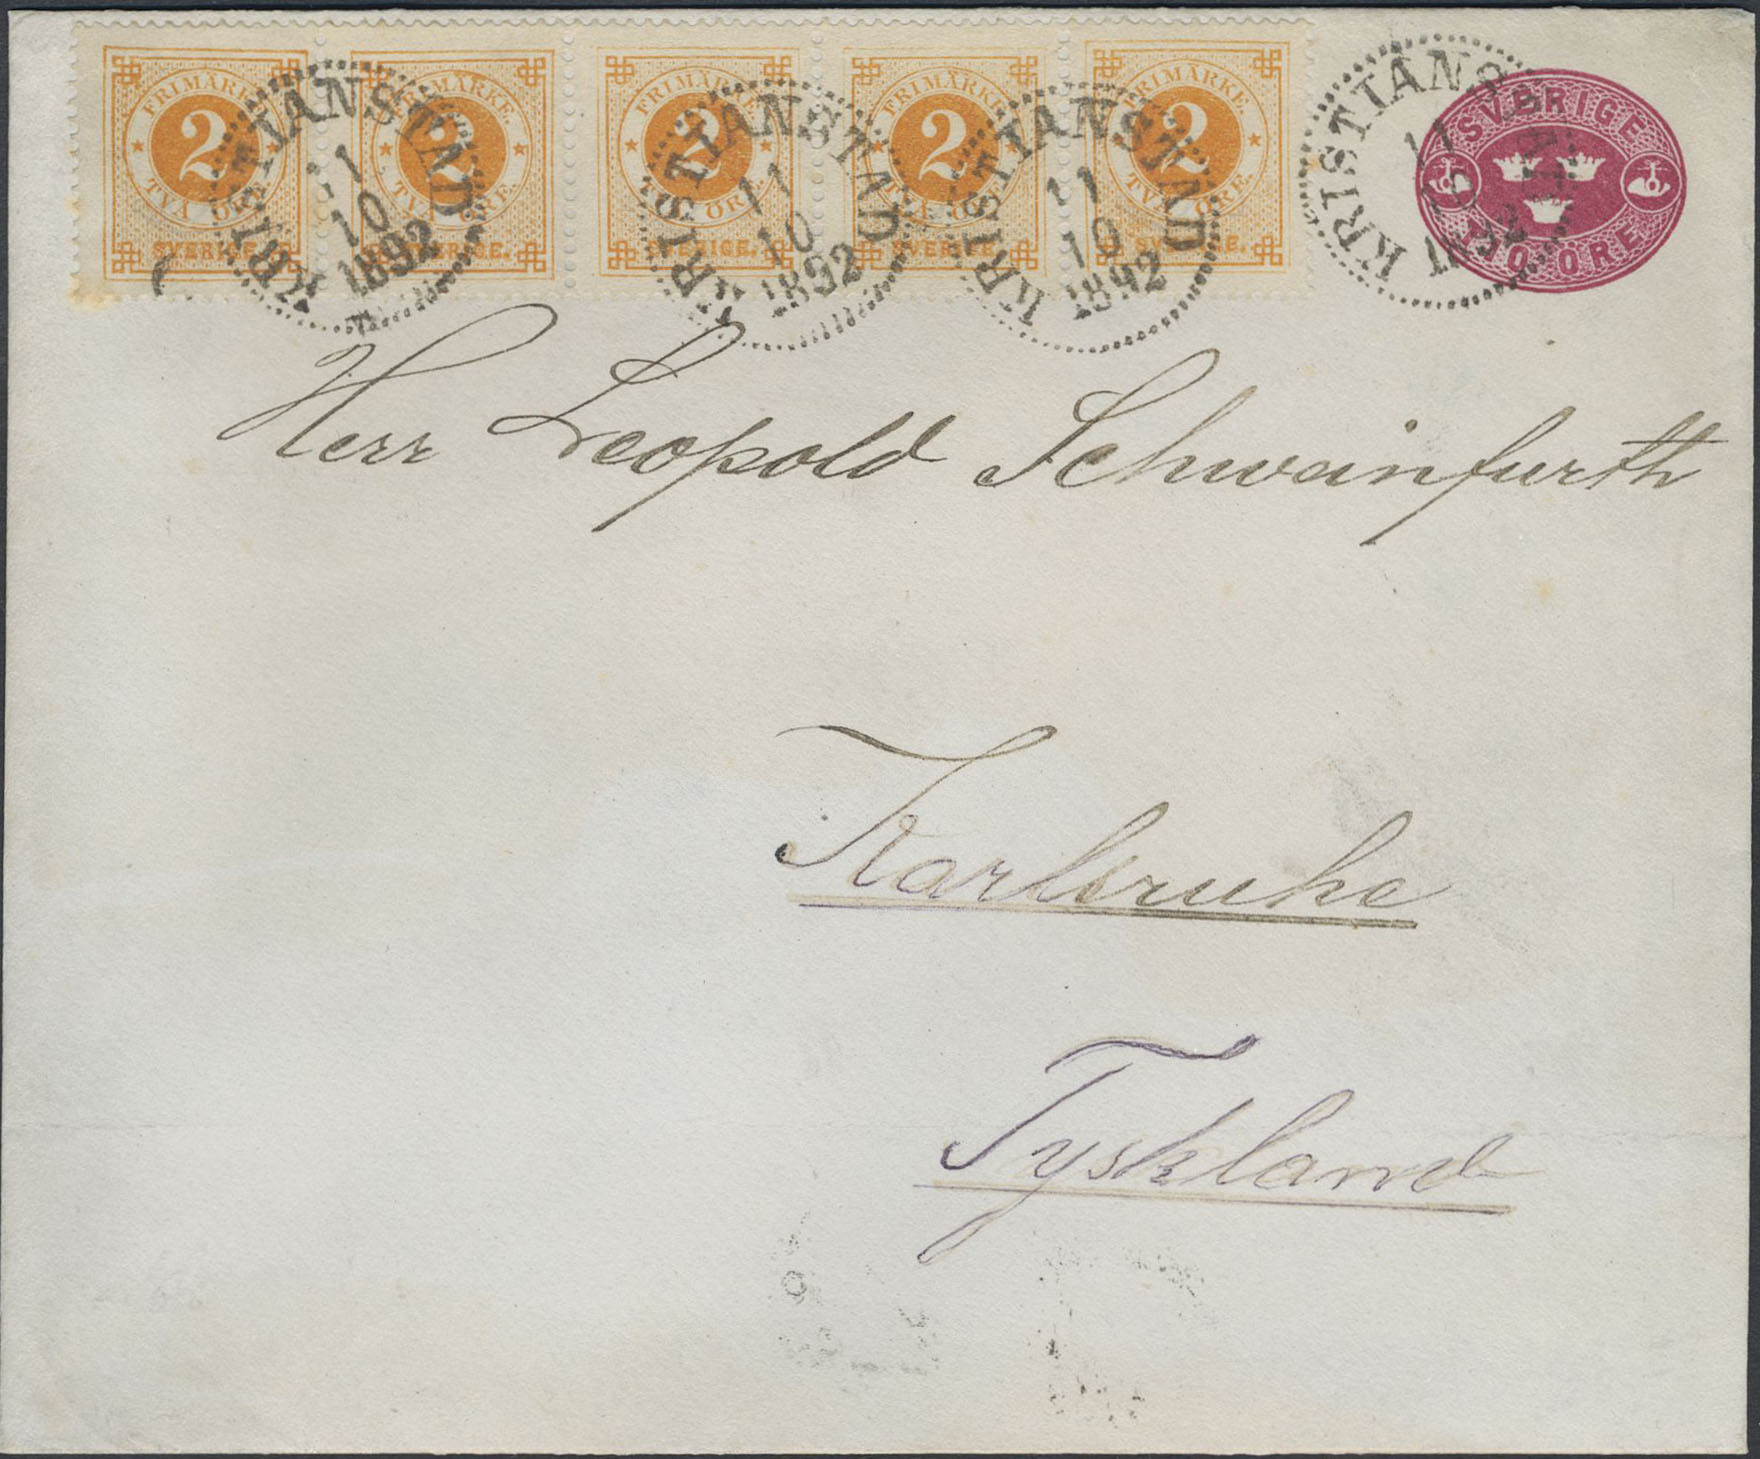 FRIMÄRKE. 2 TVÅ ÖRE. SVERIGE.
FRIMÄRKE. 2 TVÅ ÖRE. SVERIGE.
FRIMÄRKE. 2 TVÅ ÖRE. SVERIGE.
FRIMÄRKE. 2 TVÅ ÖRE. SVERIGE.
FRIMÄRKE. 2 TVÅ ÖRE. SVERIGE.
KRISTIANSTAD
11
10
1892
KRISTIANSTAD
11
10
1892
KRISTIANSTAD
11
10
1892
KRISTIANSTAD
11
10
1892
SVERIGE
TIO ÖRE
Herr Leopold Schwainfurth
Karlsruhe
Tyskland